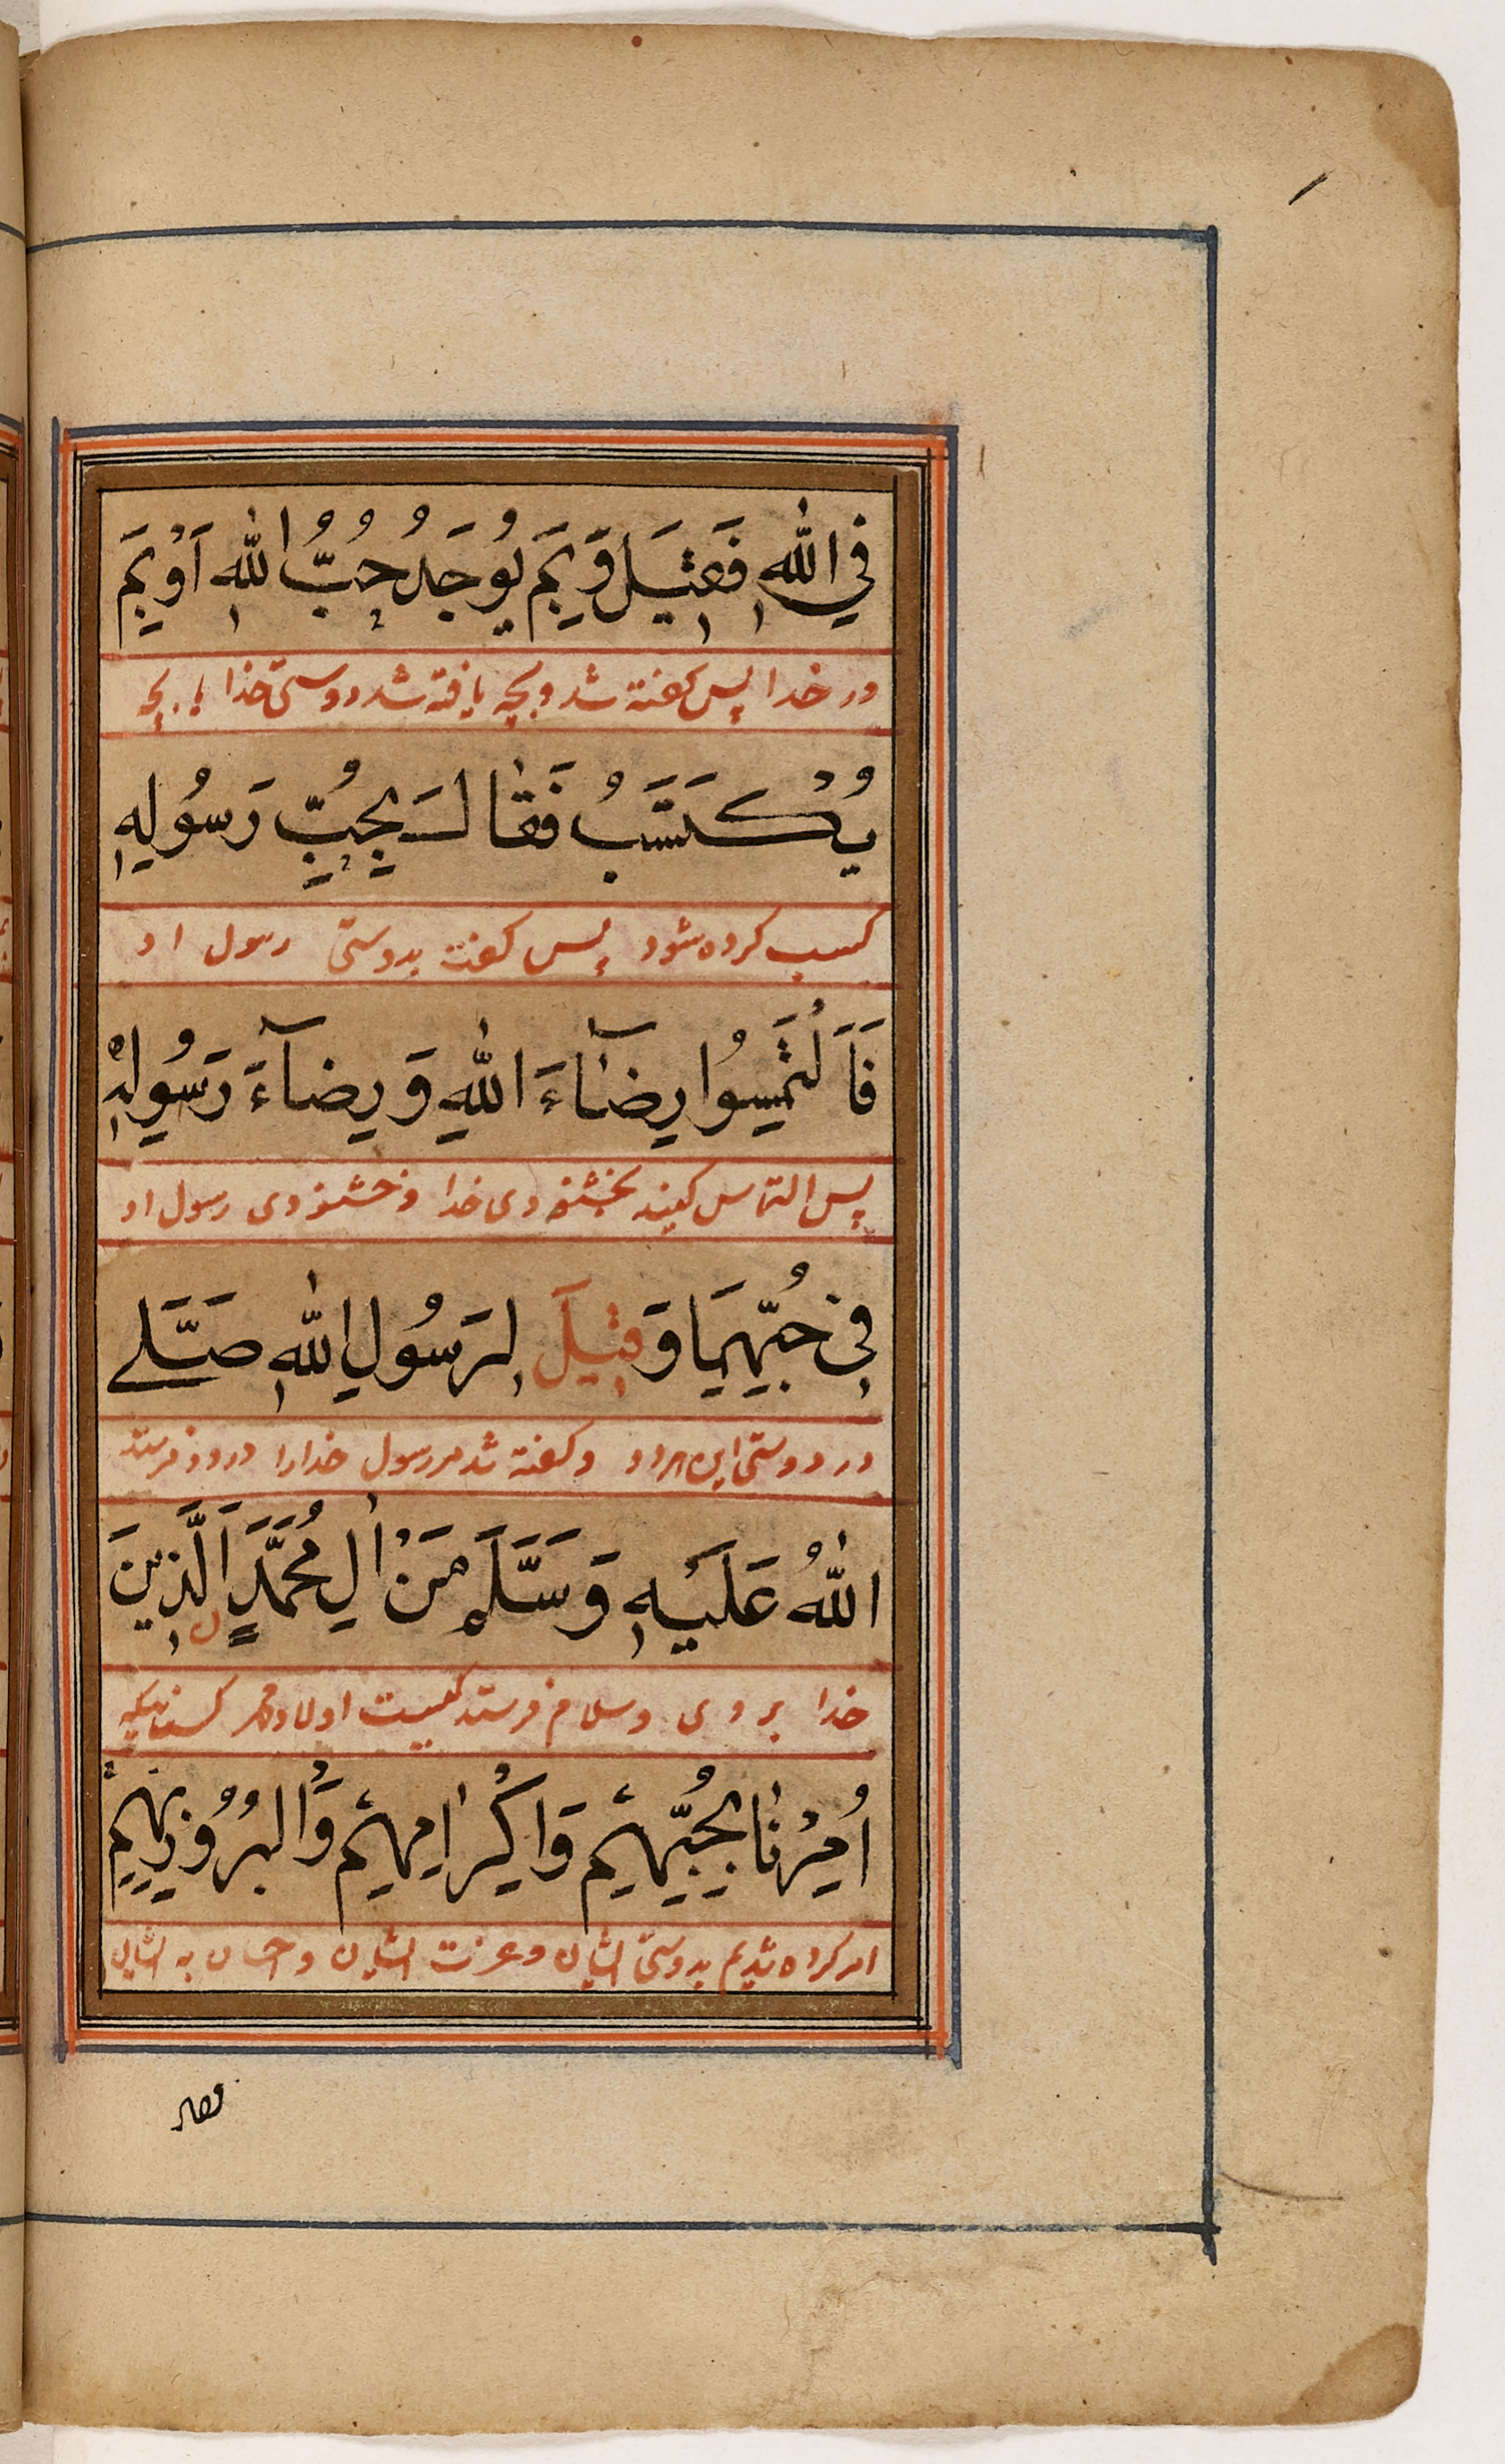 فِي اللهِ فَقِيلَ وَبِمَ يُوجَدُ حُبُّ اللهِ اَوْ بِمَ
در خدا پس گفته شد و بچه یافته شد دوستی خدا یا بچه
يُكْتَسَبُ فَقَالَ بِحُبِّ رَسُولِهِ
کسب کرده شود پس گفت بدوستی رسول او
فَالْتَمِسُوا رِضَآءَ اللهِ وَرِضَآءَ رَسُولِهِ
پس التماس کنید بخشنودی خدا و خشنودی رسول او
فِي حُبِّهِمَا وَقِيلَ لِرَسُولِ اللهِ صَلَّى
در دوستی این هر دو و گفته شد مر رسول خدا را درود فرستد
اللهُ عَلَيْهِ وَسَلَّمَ مَنْ اٰلِ مُحَمَّدٍ الَّذِينَ
خدا بر وی و سلام فرستد کیست اولاد محمد کسانیکه
اُمِرْنَا بِحُبِّهِمْ وَاِكْرَامِهِمْ وَالْبُرُورِ بِهِمْ
امر کرده شدیم بدوستی ایشان و عزت ایشان و احسان به ایشان
فقال